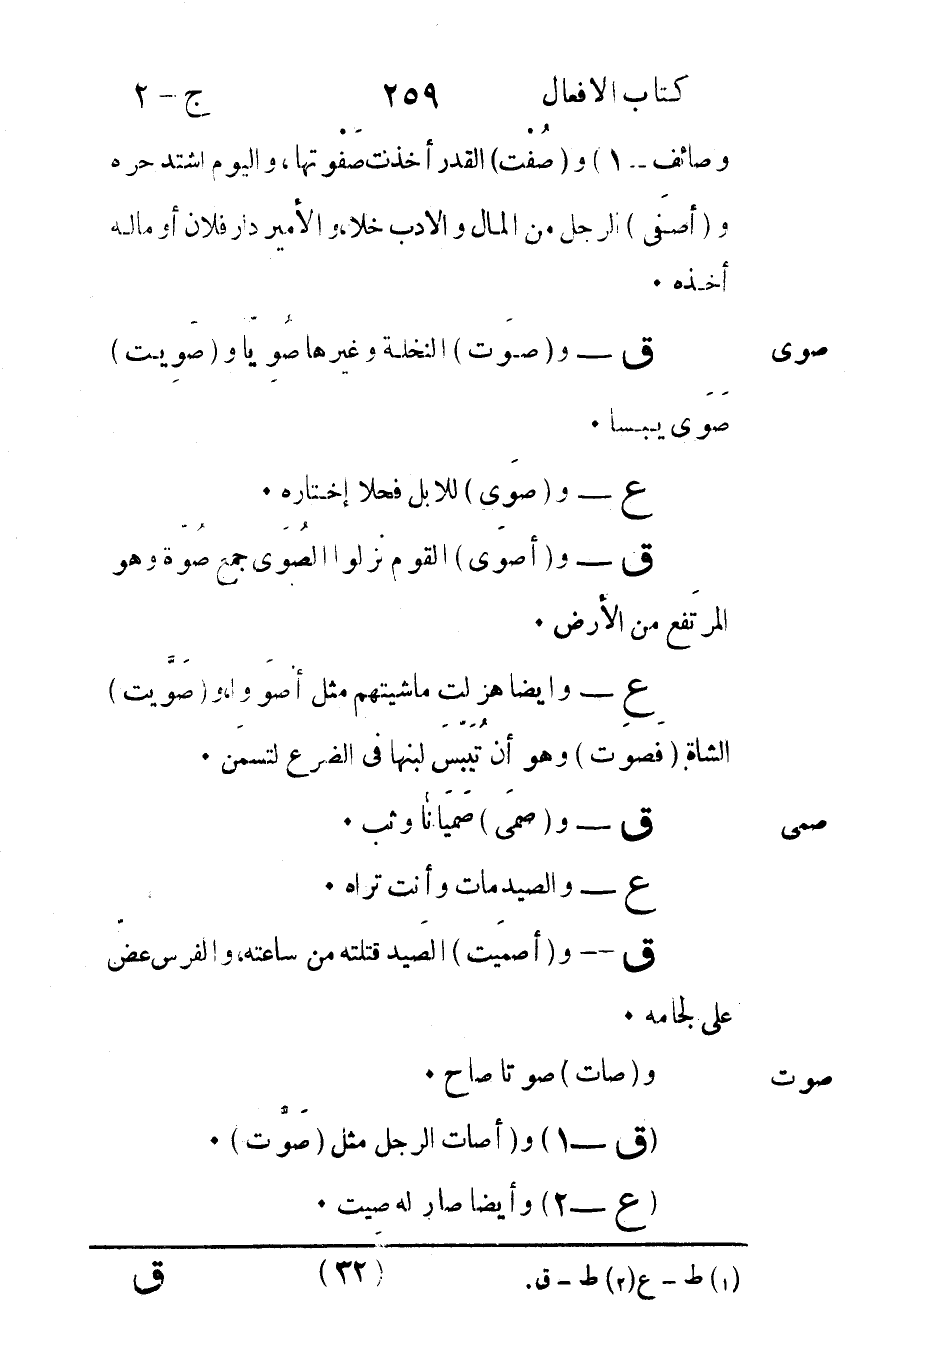 كتاب الافعال ٢٥٩ ج - ٢
وصائف -- ١ ) و ( صُفت) القدر أخذت صَفوتها ، و اليوم اشتد حره
و ( أصفَى ) الرجل من المال و الادب خلا ، و الأمير دار فلان أو ماله
أخذه ٠
صوى ق — و ( صوَت ) النخلة و غيرها صُوِيًّا و ( صَوِيت )
صَوَى يبسا ٠
ع — و ( صوَى ) للابل فحلا إختاره ٠
ق — و ( أصوَى ) القوم نزلوا الصُوَى جمع صُوّة و هو
المرتَفع من الأرض ٠
ع — و ايضا هزلت ماشيتهم مثل أضوَوا ، و ( صَوَّيت )
الشاة ( فصوَت ) و هو أن تُيَبّسَ لبنها فى الضرع لتسمَن ٠
صمى ق — و ( صمَى ) صَمَيَانًا وثب ٠
ع — و الصيد مات و أنت تراه ٠
ق -- و ( أصمَيت ) الصَيد قتلته من ساعته ، و الفرس عضّ
على لجامه ٠
صوت و ( صات ) صوتا صاح ٠
(ق — ١ ) و ( أصات الرجل مثل ( صَوَّت ) ٠
(ع — ٢ ) و أيضا صار له صِيت ٠
(١) ط - ع (٢) ط - ق. (٣٢) ق